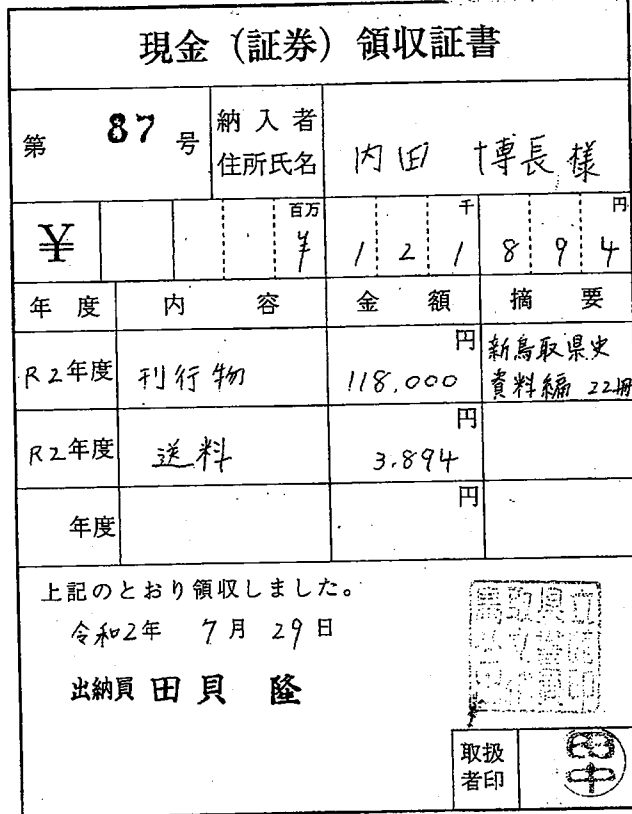 現金（証券）領収証書
第 87 号
納入者
住所氏名
内田 博長 様
¥ 百万 千 円
¥ 1 2 1 8 9 4
年度 内容 金額 摘要
R2年度 刊行物 118,000円 新鳥取県史
資料編 22冊
R2年度 送料 3.894円
年度 円
上記のとおり領収しました。
令和2年 7月 29日
出納員 田貝 隆
取扱
者印
田中